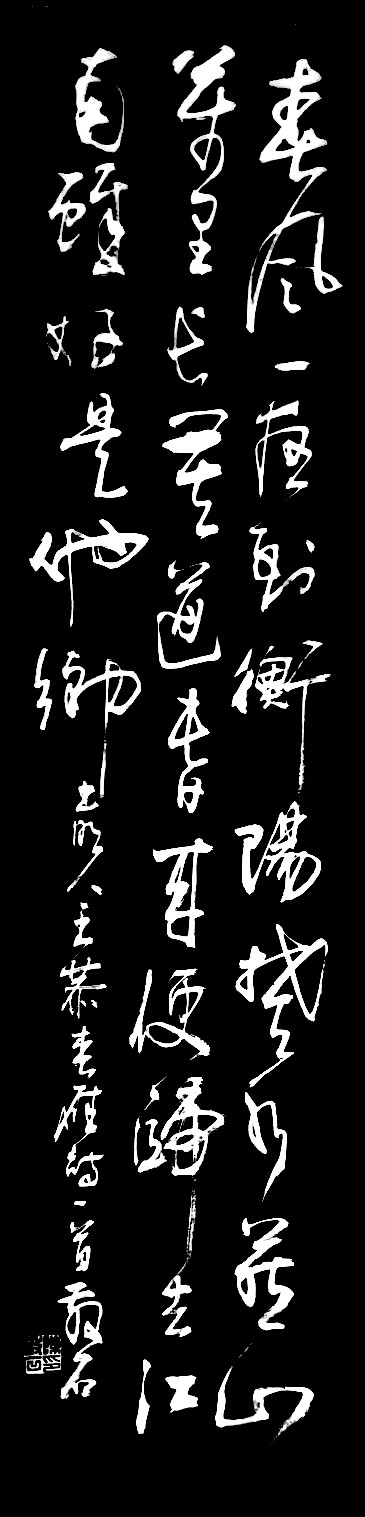 春風一夜到衡陽楚水燕山
萬里長莫道春来便歸去江
南雖好是他鄉
明人王恭春雁詩一首